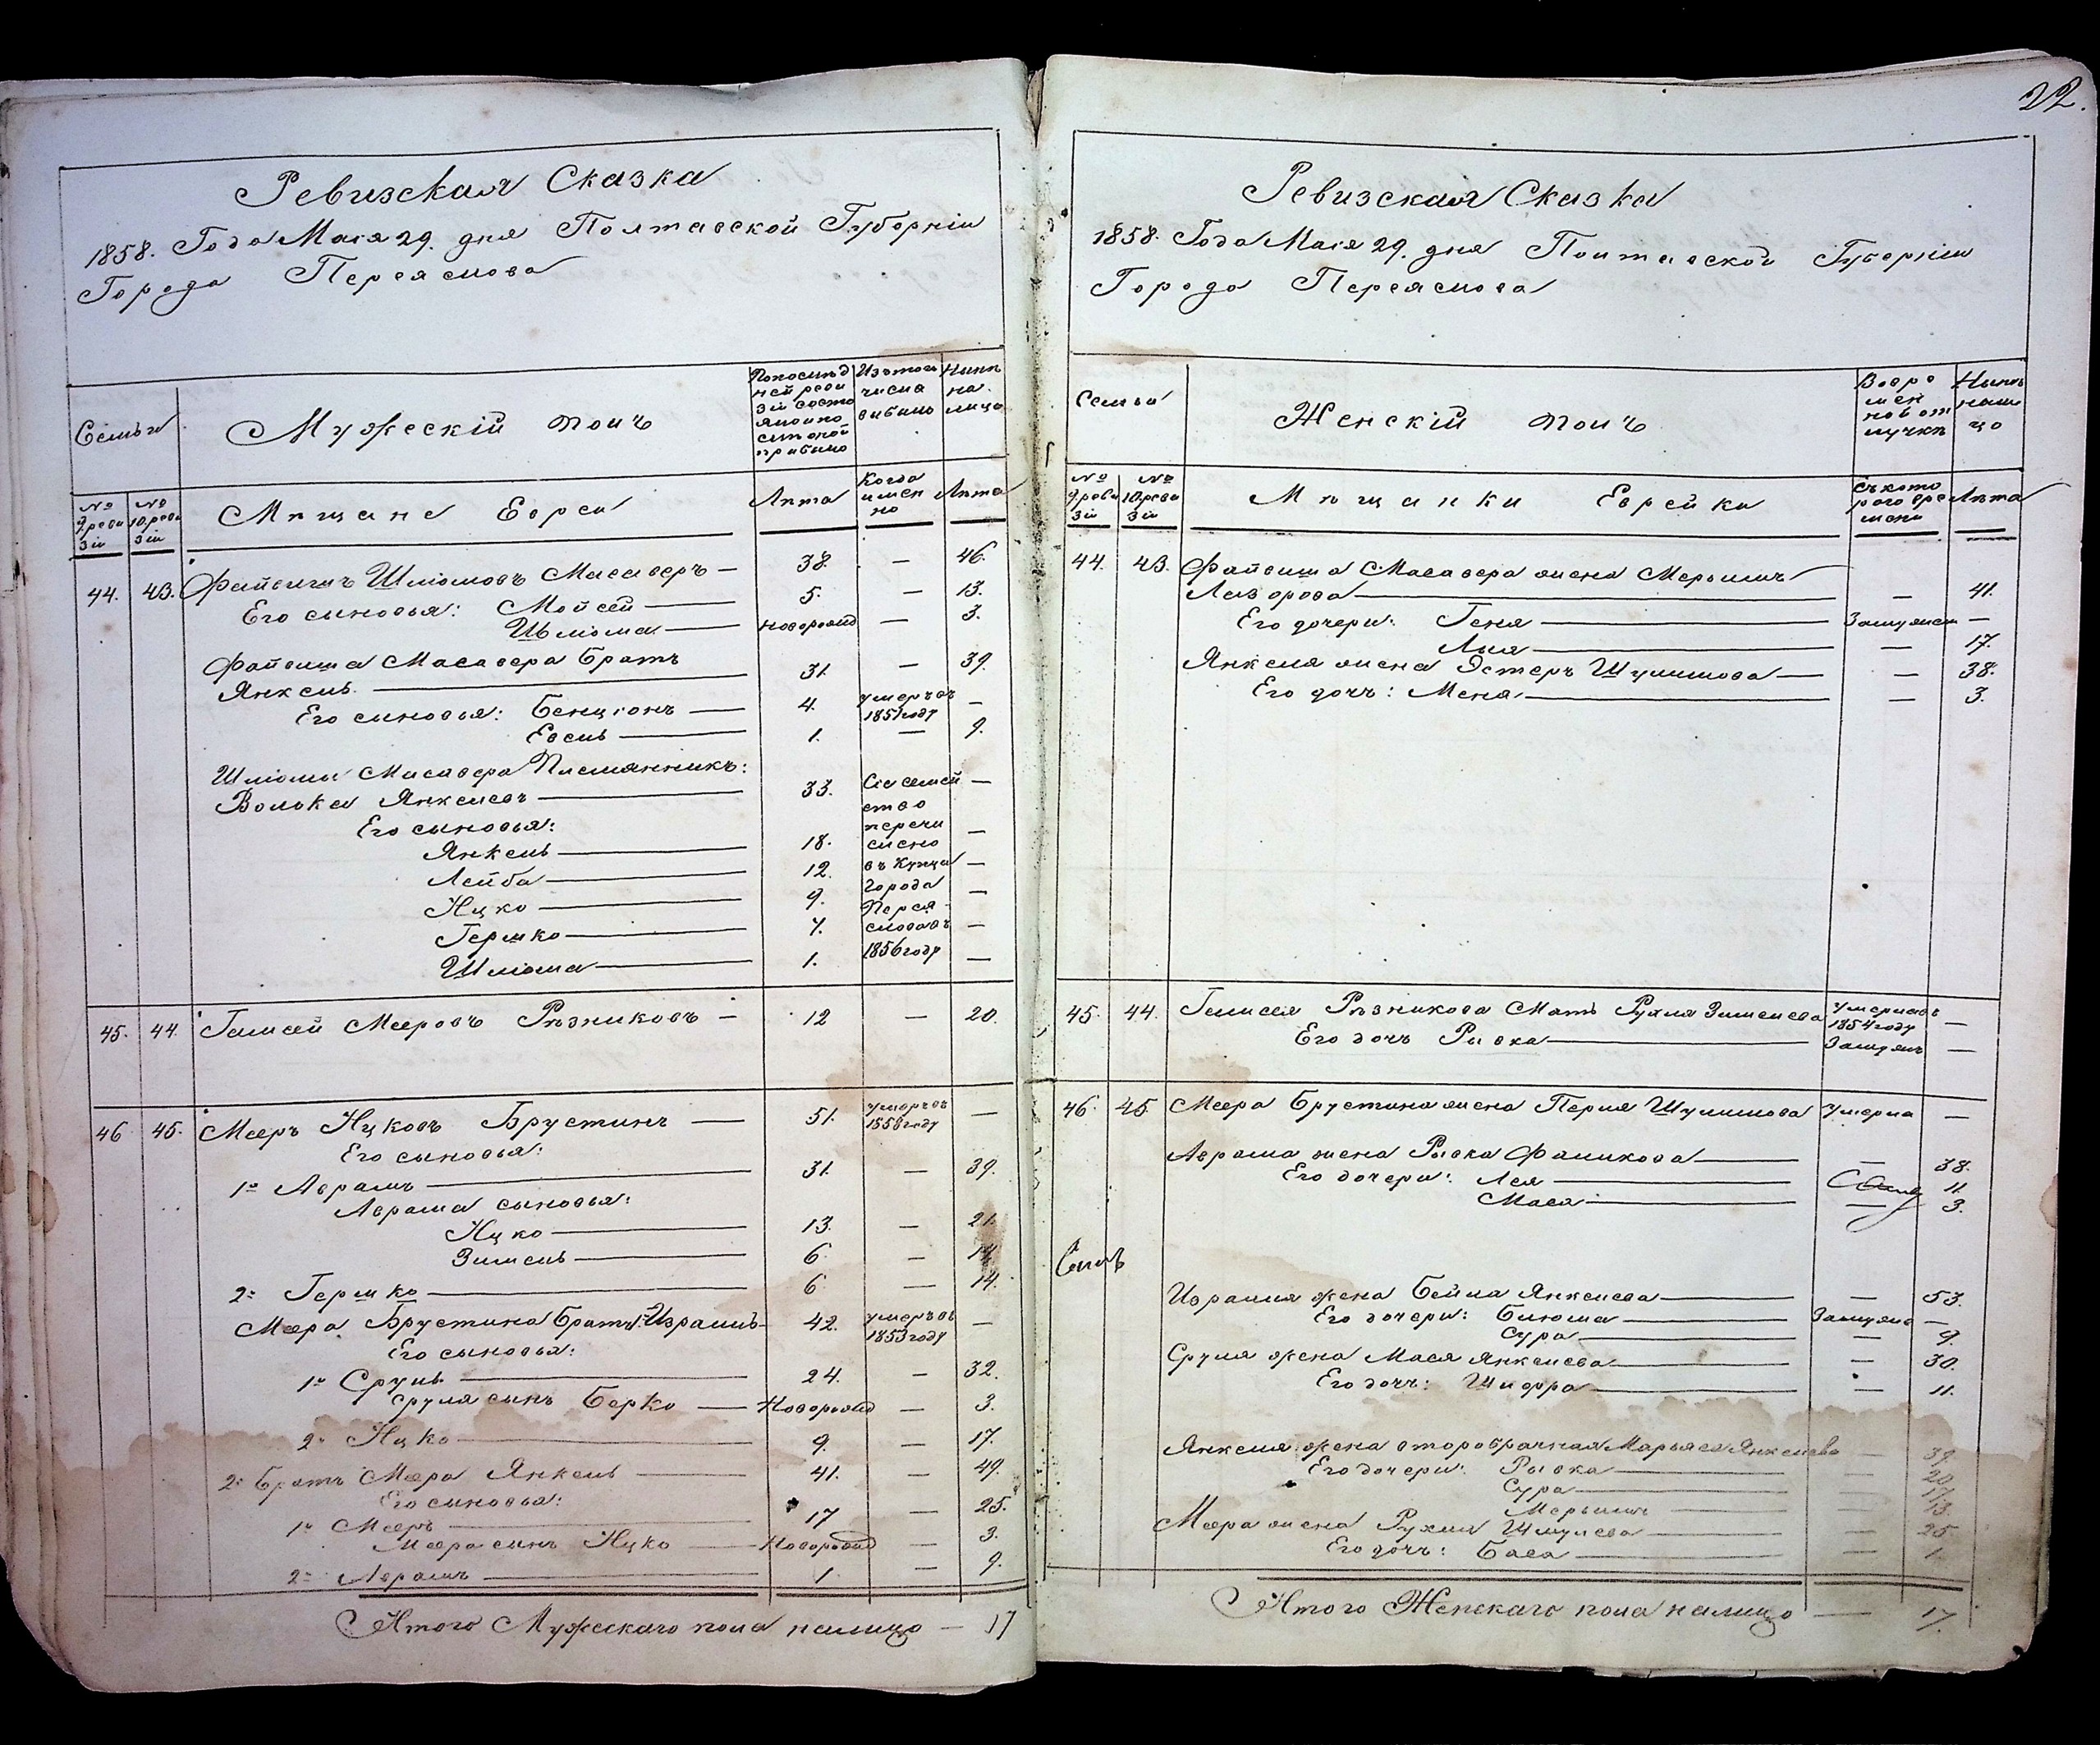 22.
Ревизская Сказка
1858. Года Мая 29. дня Полтавской Губерніи
Города Переяслова
Семьи
Мужескій полъ
По последней ревизіи состояло и после оной прибыло
Изътого числа выбыло
Ныне на лицо
№ 9 ревизіи
№ 10 ревизіи
Мещане Евреи
Лета
Когда именно
Лета
44. 43. Файвишъ Шліомовъ Масаверъ — 38. — 46.
Его сыновья: Мойсей — 5. — 13.
Шліома — новорожд — 3.
Файвиша Масавера братъ
Янкель — 31. — 39.
Его сыновья: Бенціонъ — 4. умеръ въ 1851 году —
Евель — 1. — 9.
Шліомы Масавера Племянникъ:
Волька Янкелевъ — 33. —
Его сыновья:
Янкель — 18. —
Лейба — 12. —
Ицко — 9. —
Гершко — 7. —
Шліома — 1. —
Съ семейство перечислено въ купцы города Переяславъ 1856 году
45. 44. Гамшей Мееровъ Резниковъ — 12 — 20.
46 45. Мееръ Ицковъ Брустинъ — 51. умеръ въ 1858 году —
Его сыновья:
1й Аврамъ — 31. — 39.
Аврама сыновья:
Ицко — 13. — 21.
Зимель — 6. — 14.
2й Гершко — 6 — 14.
Меера Брустина братъ Израиль — 42. умеръ въ 1853 году —
Его сыновья:
1й Сруль — 24. — 32.
Сруля сынъ Берко — Новорожд — 3.
2й Ицко — 9. — 17.
2й братъ Меера Янкель — 41. — 49.
Его сыновья:
1й Мееръ — 17 — 25.
Меера сынъ Ицко — Новорожд — 3.
2й Аврамъ — 1 — 9.
Итого Мужескаго пола налицо — 17
Ревизская Сказка
1858. Года Мая 29. дня Полтавской Губерніи
Города Переяслова
Семьи
Женскій полъ
Во временной отлучке
Ныне на лицо
№ 9 ревизіи
№ 10 ревизіи
Мещанки Еврейки
Съ котораго времени
Лета
44. 43. Файвиша Масавера жена Мерьимъ
Лазорова — — 41.
Его дочери: Геня — Замужем —
Лия — — 17.
Янкеля жена Эстеръ Шулимова — — 38.
Его дочъ: Меня — — 3.
45. 44. Гамшея Резникова Мать Рухля Зимелева умерла въ 1854 году —
Его дочъ Рывка — Замужъ —
46. 45. Меера Брустина жена Перля Шулимова Умерла —
Аврама жена Рывка Фаликова — — 38.
Его дочери: Лея — 11.
Мася — — 3.
Израиля жена Бейла Янкелева — — 53.
Его дочери: Блюма — Замужъ —
Сура — — 9.
Сруля жена Мася Янкелева — — 30.
Его дочъ: Шифра — — 11.
Янкеля жена второбрачная Марьяся Янкелева — 39.
Его дочери: Рывка — 20.
Сура — 17.
Мерьимъ — 13.
Меера жена Рухля Шмулева — — 25
Его дочъ: Бася — — 1.
Итого Женскаго пола налицо — 17.